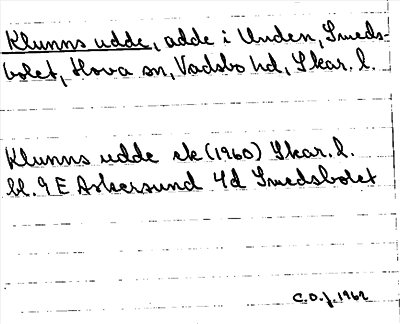 Klunns udde, adde i Unden, Smeds-
bolet, Hova sn, Vadsbo hd, Skar. l.
Klunns udde ek (1960) Skar. l.
bl. 9 E Askersund 4d Smedsbolet
C.O.J. 1962